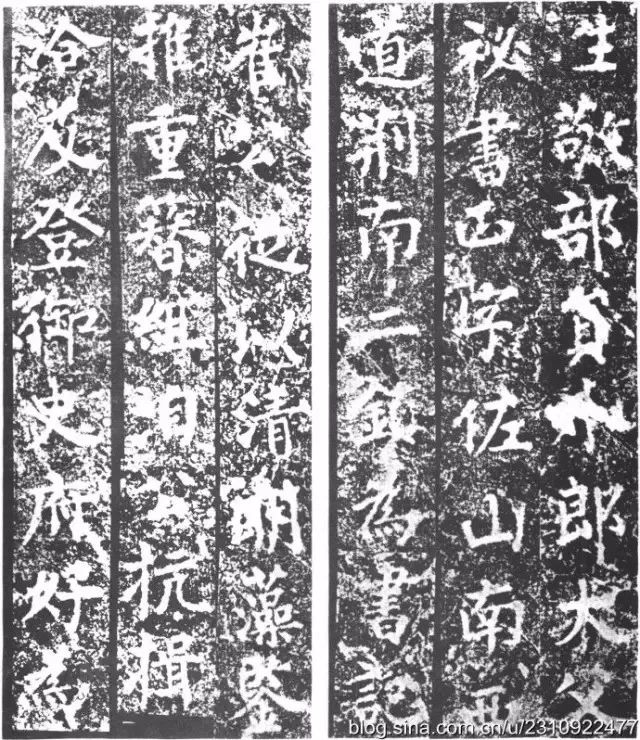 生敬部員外郎大父
祕書正字佐山南西
道荆南二鎮為書記
崔公從以清明藻鑒
推重簪抗揖
及登御史府好
blog.sina.com.cn/u/2310922477